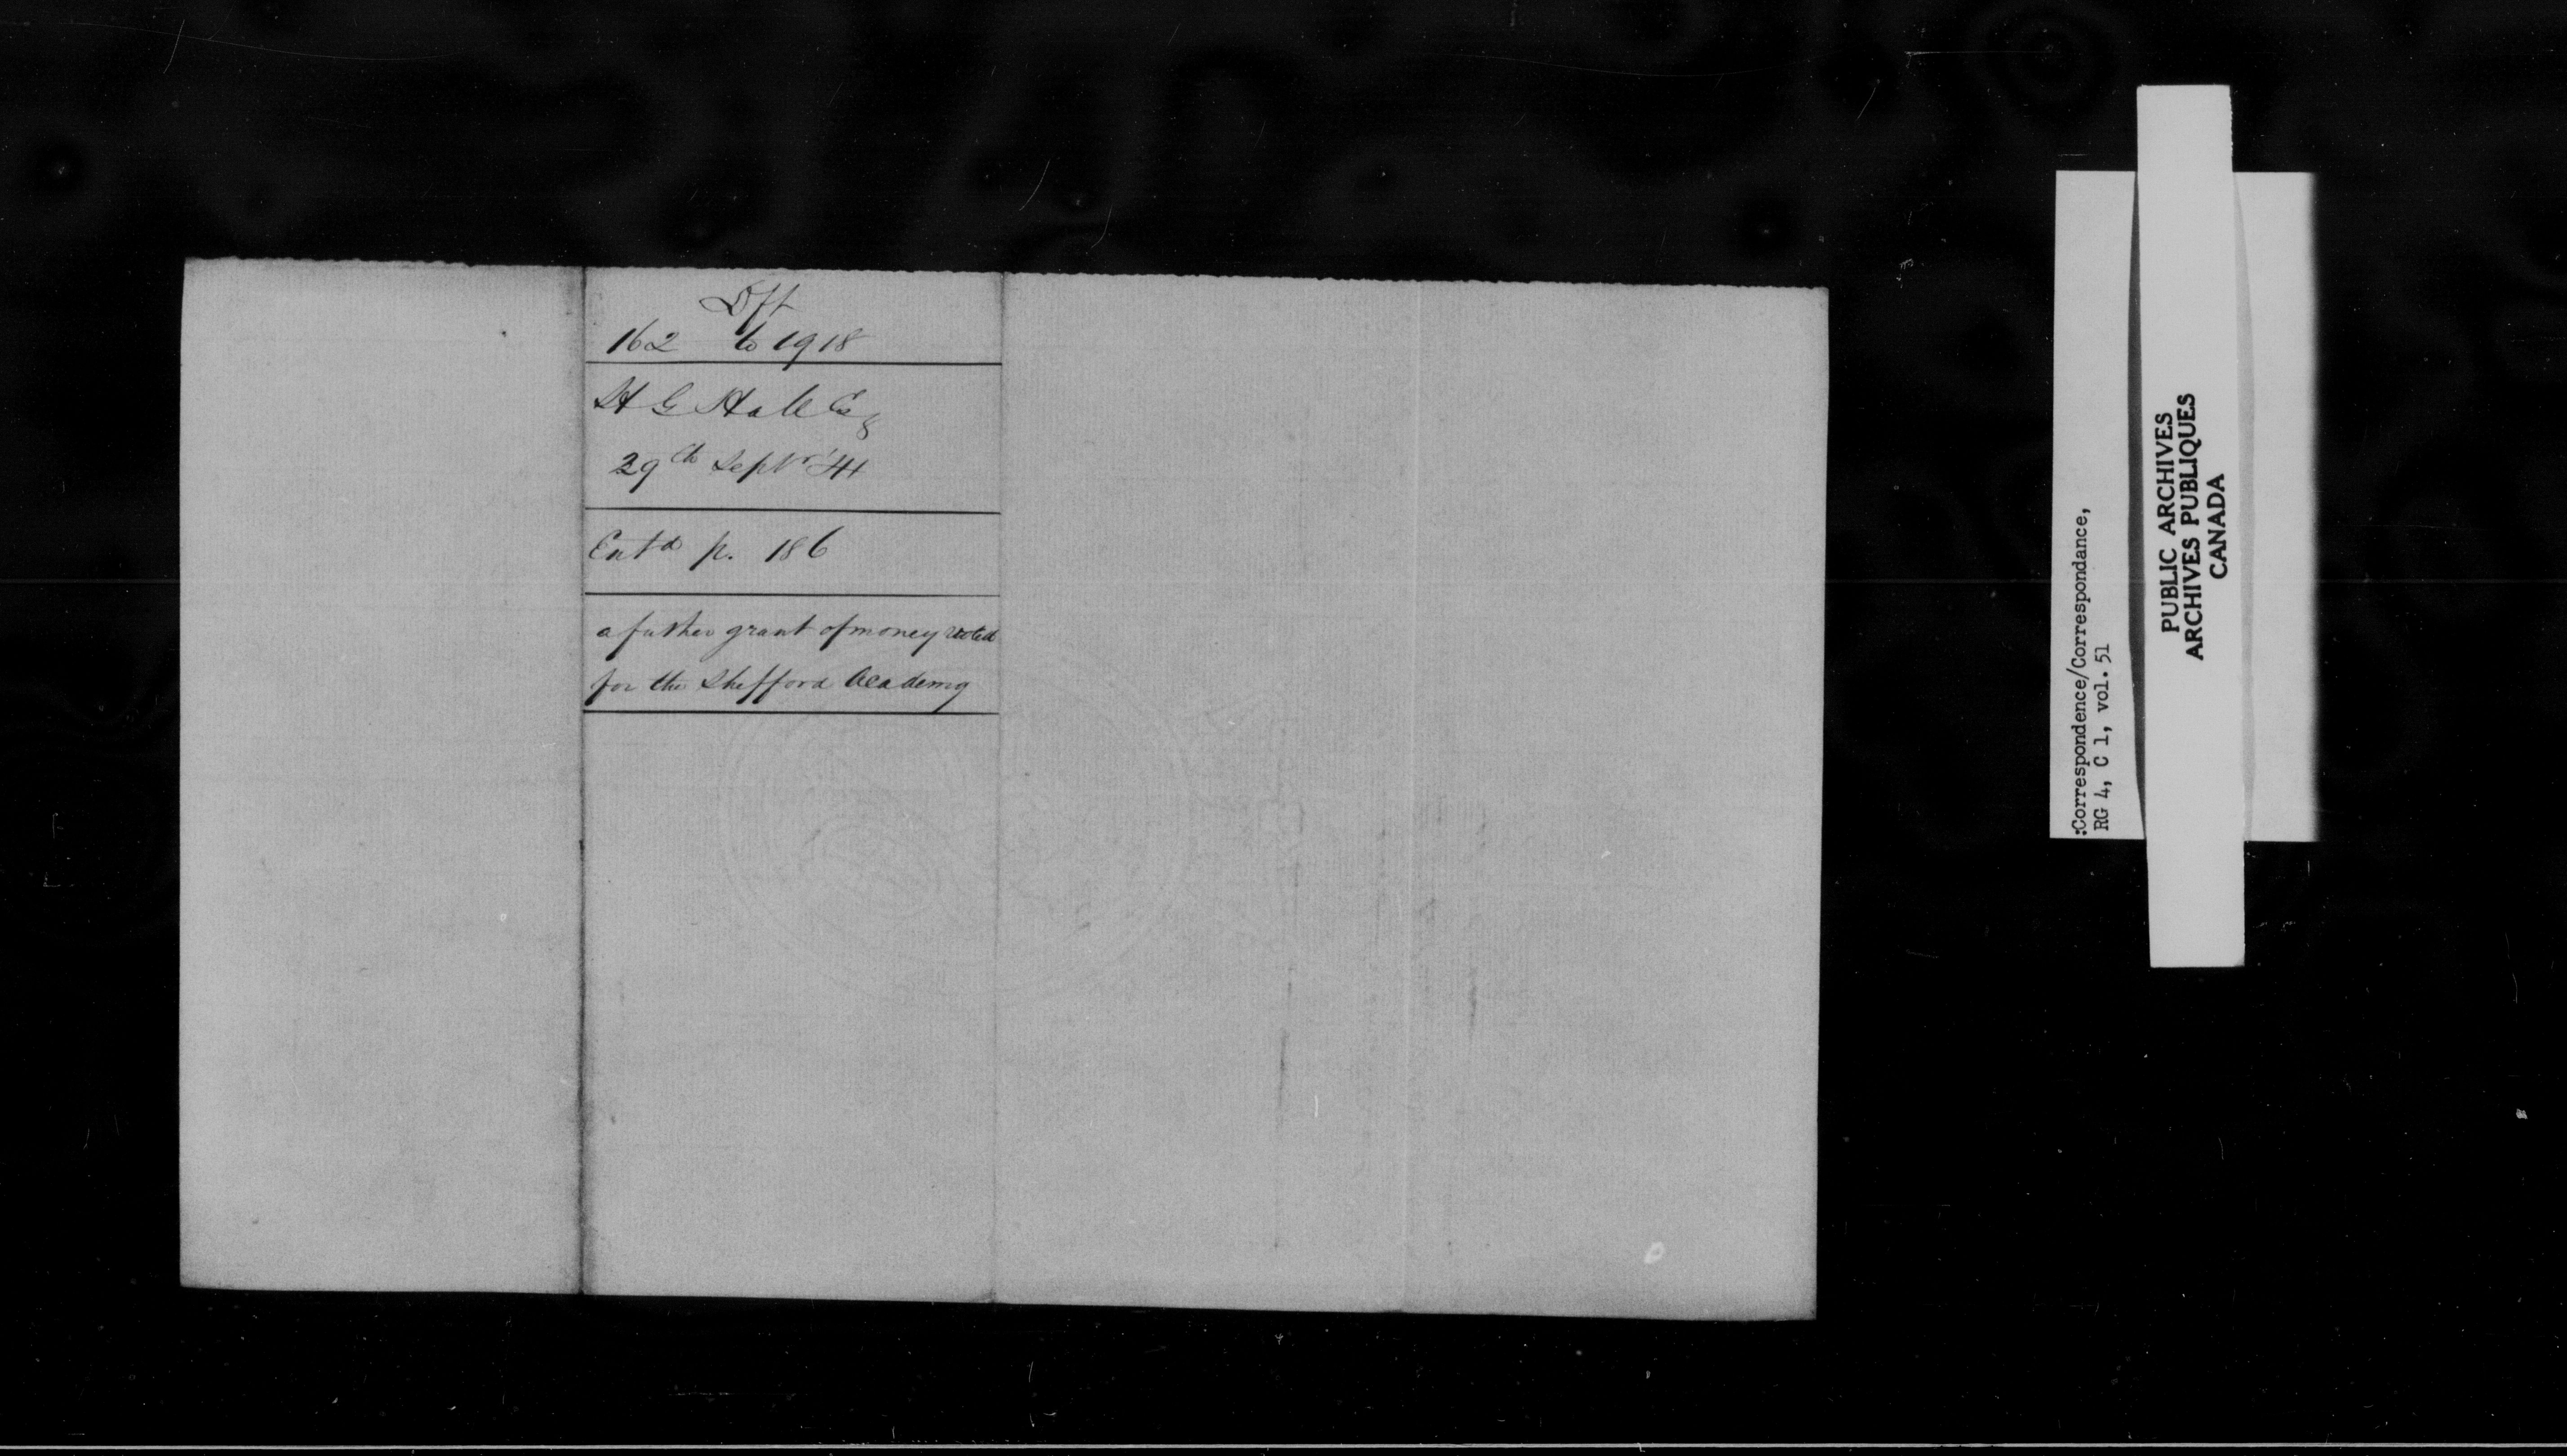 Dft
162 to 1918
H G Hall Esq
29th Septr '41
Entd p. 186
a futher grant of money voted
for the Shefford Academy
:Correspondence/Correspondance,
RG 4, C 1, vol. 51
PUBLIC ARCHIVES
ARCHIVES PUBLIQUES
CANADA